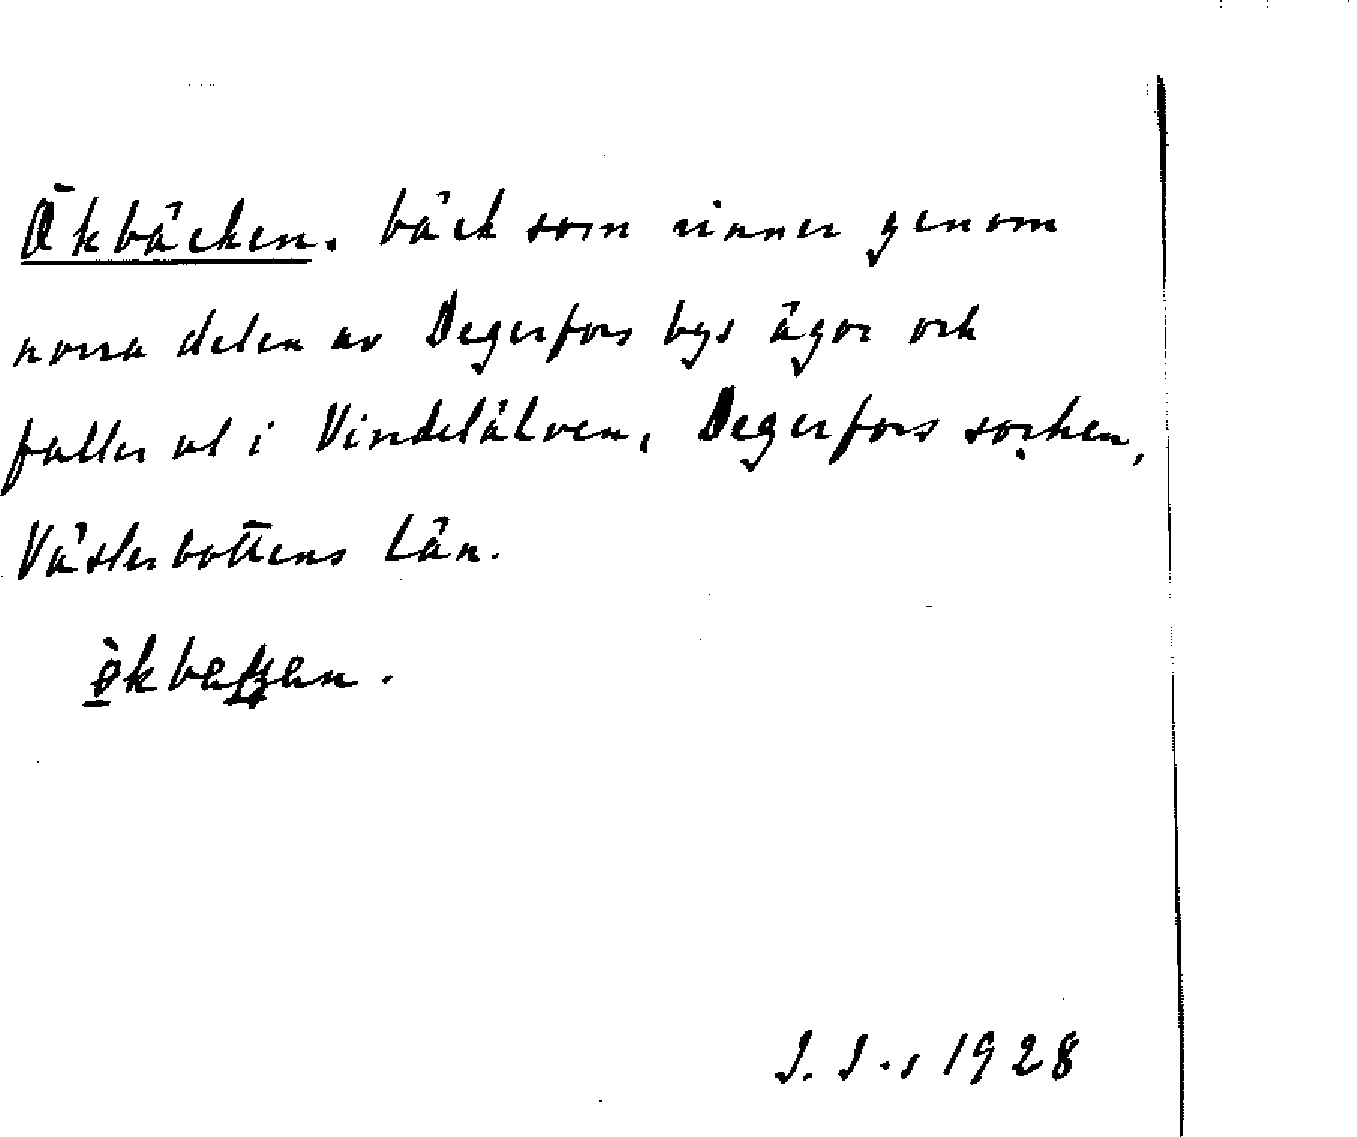 Ökbäcken. bäck som rinner genom
norra delen av Degerfors bys ägor och
faller ut i Vindelälven, Degerfors socken,
Västerbottens Län.
J. J., 1928